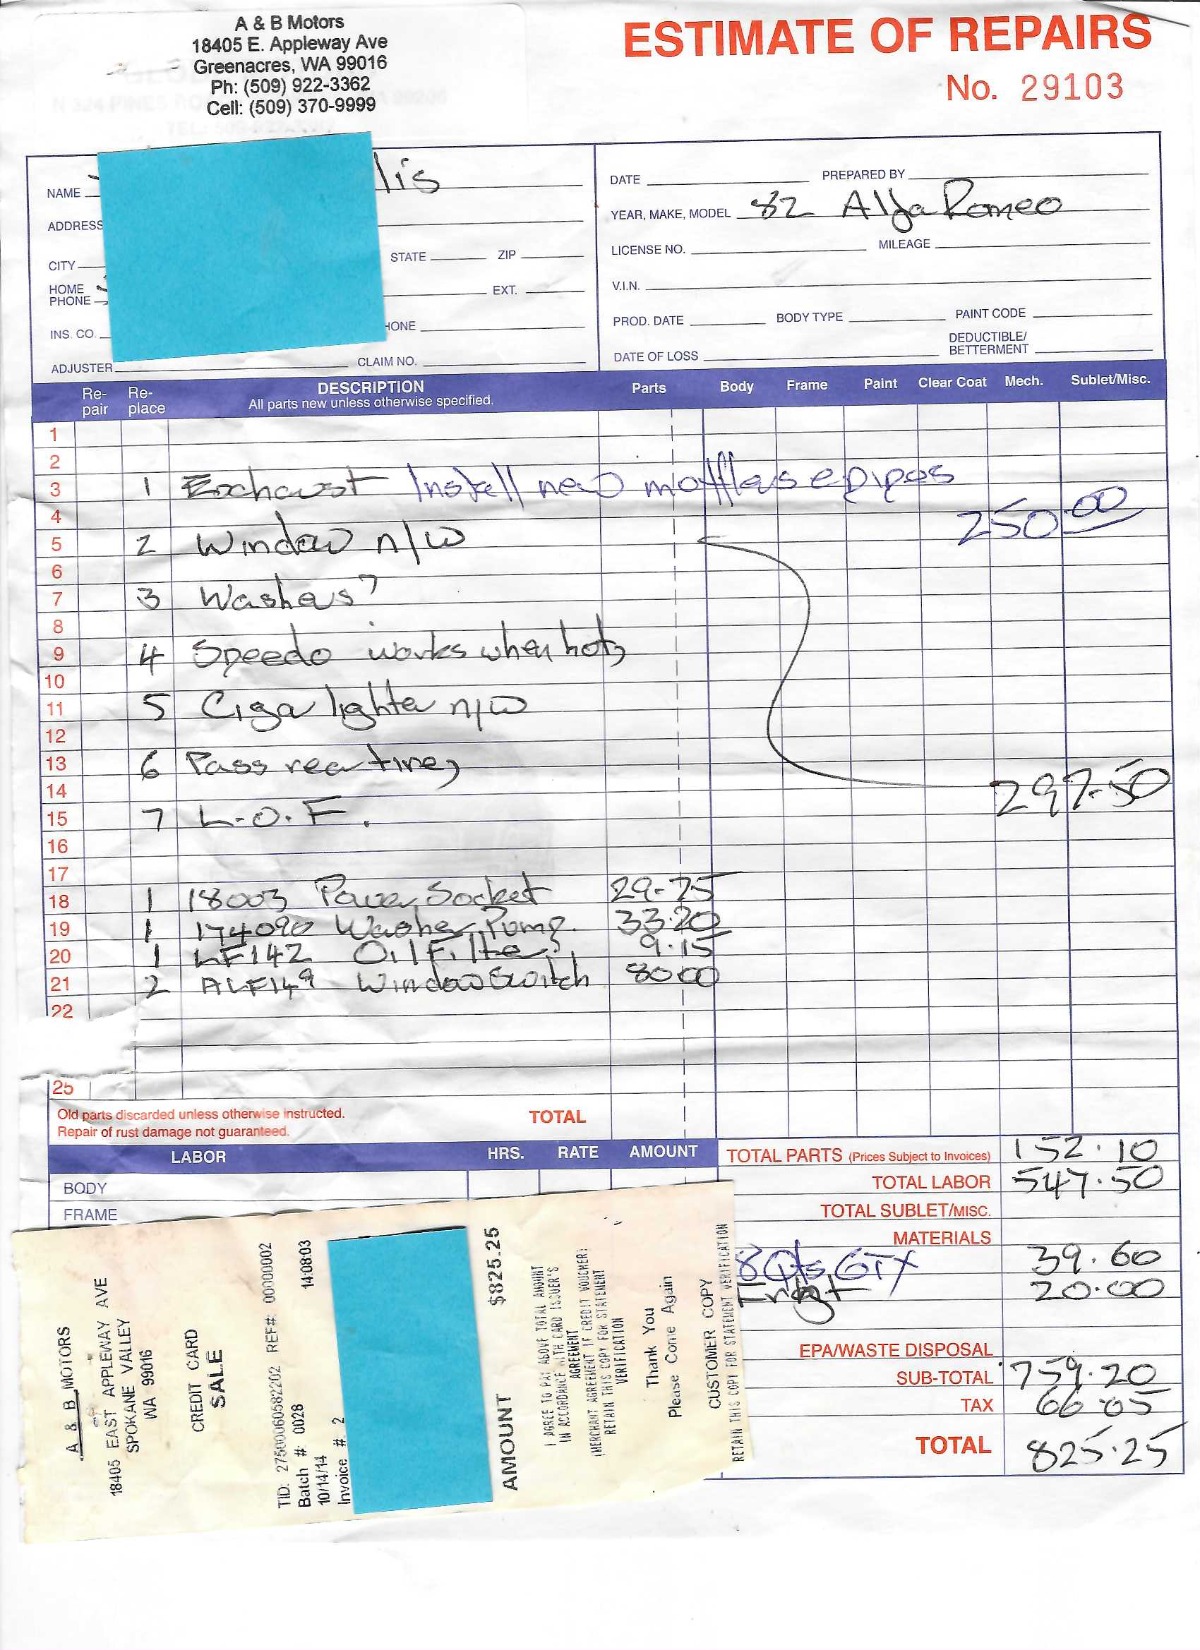 A & B Motors
18405 E. Appleway Ave
Greenacres, WA 99016
Ph: (509) 922-3362
Cell: (509) 370-9999
ESTIMATE OF REPAIRS
No. 29103
NAME lis
ADDRESS
CITY STATE ZIP
HOME PHONE EXT.
INS. CO. HONE
ADJUSTER CLAIM NO.
DATE PREPARED BY
YEAR, MAKE, MODEL 82 Alfa Romeo
LICENSE NO. MILEAGE
V.I.N.
PROD. DATE BODY TYPE PAINT CODE
DATE OF LOSS DEDUCTIBLE/ BETTERMENT
Re-pair Re-place DESCRIPTION Parts Body Frame Paint Clear Coat Mech. Sublet/Misc.
All parts new unless otherwise specified.
1
2
3 1 Exhaust Install new mufflers e pipes
4 250.00
5 2 Window n/w
6
7 3 Washers?
8
9 4 Speedo works when hot,
10
11 5 Ciga lighter n/w
12
13 6 Pass rear tire,
14 297.50
15 7 L.O.F.
16
17
18 1 18003 Power Socket 29-75
19 1 174090 Washer Pump. 33.20
20 1 LF142 Oil Filter 9.15
21 2 ALF149 Window Switch 80 00
22
25
Old parts discarded unless otherwise instructed.
Repair of rust damage not guaranteed.
TOTAL
LABOR HRS. RATE AMOUNT
BODY
FRAME
TOTAL PARTS (Prices Subject to Invoices) 152.10
TOTAL LABOR 547.50
TOTAL SUBLET/MISC.
MATERIALS
8 Qts GTX 39.60
Frght 20.00
EPA/WASTE DISPOSAL
SUB-TOTAL 759.20
TAX 66.05
TOTAL 825.25
A & B MOTORS
18405 EAST APPLEWAY AVE
SPOKANE VALLEY
WA 99016
CREDIT CARD
SALE
TID: 27500060582202 REF#: 00000002
Batch #: 0028
10/14/14 14:08:03
Invoice #: 2
AMOUNT $825.25
I AGREE TO PAY ABOVE TOTAL AMOUNT
IN ACCORDANCE WITH CARD ISSUER'S
AGREEMENT
(MERCHANT AGREEMENT IF CREDIT VOUCHER)
RETAIN THIS COPY FOR STATEMENT
VERIFICATION
Thank You
Please Come Again
CUSTOMER COPY
RETAIN THIS COPY FOR STATEMENT VERIFICATION